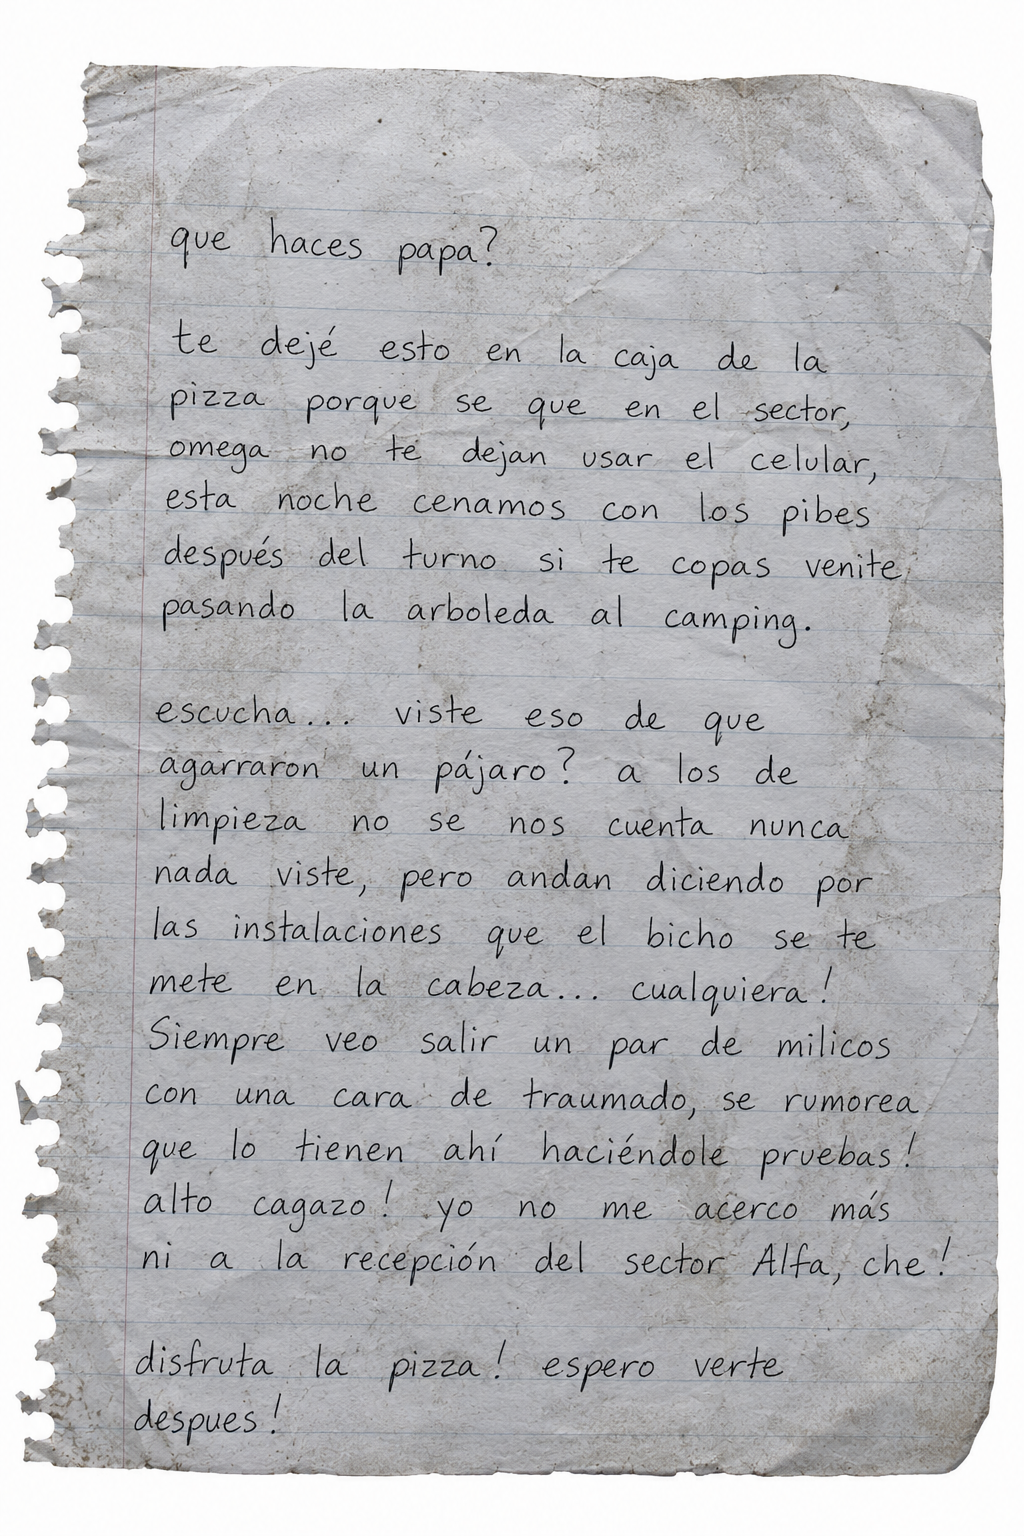 que haces papa?
te dejé esto en la caja de la
pizza porque se que en el sector,
omega no te dejan usar el celular,
esta noche cenamos con los pibes
después del turno si te copas venite
pasando la arboleda al camping.
escucha... viste eso de que
agarraron un pájaro? a los de
limpieza no se nos cuenta nunca
nada viste, pero andan diciendo por
las instalaciones que el bicho se te
mete en la cabeza... cualquiera!
Siempre veo salir un par de milicos
con una cara de traumado, se rumorea
que lo tienen ahí haciéndole pruebas!
alto cagazo! yo no me acerco más
ni a la recepción del sector Alfa, che!
disfruta la pizza! espero verte
despues!